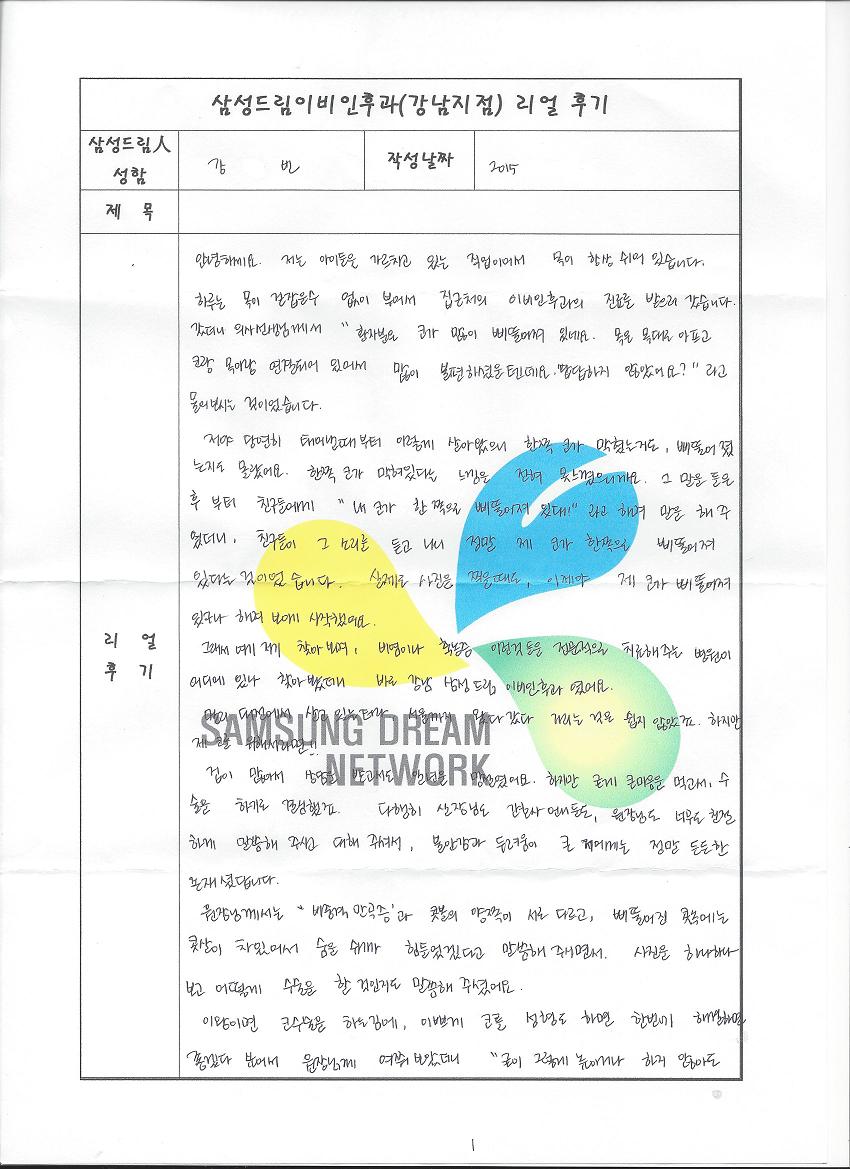 삼성드림이비인후과(강남지점) 리얼 후기
삼성드림人
성함
강 빈
작성날짜
2015
제 목
안녕하세요. 저는 아이들을 가르치고 있는 직업이여서 목이 항상 쉬어 있습니다.
하루는 목이 걷잡을수 없이 부어서 집근처의 이비인후과의 진료를 받으러 갔습니다.
갔더니 의사선생님께서 "환자분은 코가 많이 삐뚤어져 있네요. 목은 목대로 아프고
코랑 목이랑 연결되어 있어서 많이 불편하셨을텐데요. 답답하지 않았어요?" 라고
물어보시는 것이었습니다.
저야 당연히 태어날때부터 이렇게 살아왔으니 한쪽 코가 막혔는거도, 삐뚤어 졌
는지도 몰랐어요. 한쪽 코가 막혀있다는 느낌은 전혀 못느꼈으니까요. 그 말을 들은
후 부터 친구들에게 "내 코가 한 쪽으로 삐뚤어져 있대!" 라고 하며 말을 해 주
었더니, 친구들이 그 소리를 듣고 나니 정말 제 코가 한쪽으로 삐뚤어져
있다는 것이었 습니다. 실제로 사진을 찍을때도, 이제야 제 코가 삐뚤어져
있구나 하며 보이기 시작했어요.
리 얼
후 기
그래서 여기 저기 찾아 보며, 비염이나 축농증 이런것 등을 전문적으로 치료해주는 병원이
어디에 있나 찾아 봤더니 바로 강남 삼성드림 이비인후과 였어요.
대전에서 살고 있는터라 서울까지 왔다 갔다 거리는 것은 쉽지 않았죠. 하지만
제 코를 위해서라면!!
SAMSUNG DREAM
NETWORK
겁이 많아서 상담을 받고서도 망설였어요. 하지만 굳게 큰마음을 먹고서, 수
술을 하기로 결심했죠. 다행히 실장님도 간호사 언니들도, 원장님도 너무도 친절
하게 말씀해 주시고 대해 주셔서, 불안감과 두려움이 큰 저에게는 정말 든든한
존재 셨답니다.
원장님께서는 "비중격 만곡증"과 콧볼의 양쪽이 서로 다르고, 삐뚤어진 콧속에는
콧살이 차있어서 숨을 쉬기 힘들었겠다고 말씀해 주시면서. 사진을 하나하나
보고 어떻게 수술을 할 것인지도 말씀해 주셨어요.
이왕이면 코수술을 하는김에, 이쁘게 코를 성형도 하면 한번에 해결하면
좋겠다 싶어서 원장님께 여쭤 보았더니 "굳이 그렇게 높이거나 하지 않아도
1